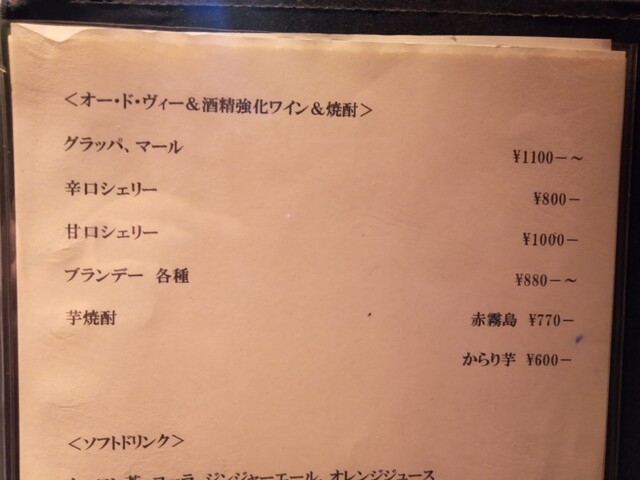 ＜オー・ド・ヴィー＆酒精強化ワイン＆焼酎＞
グラッパ、マール ¥1100－～
辛口シェリー ¥800－
甘口シェリー ¥1000－
ブランデー 各種 ¥880－～
芋焼酎 赤霧島 ¥770－
からり芋 ¥600－
＜ソフトドリンク＞
ジンジャーエール、オレンジジュース